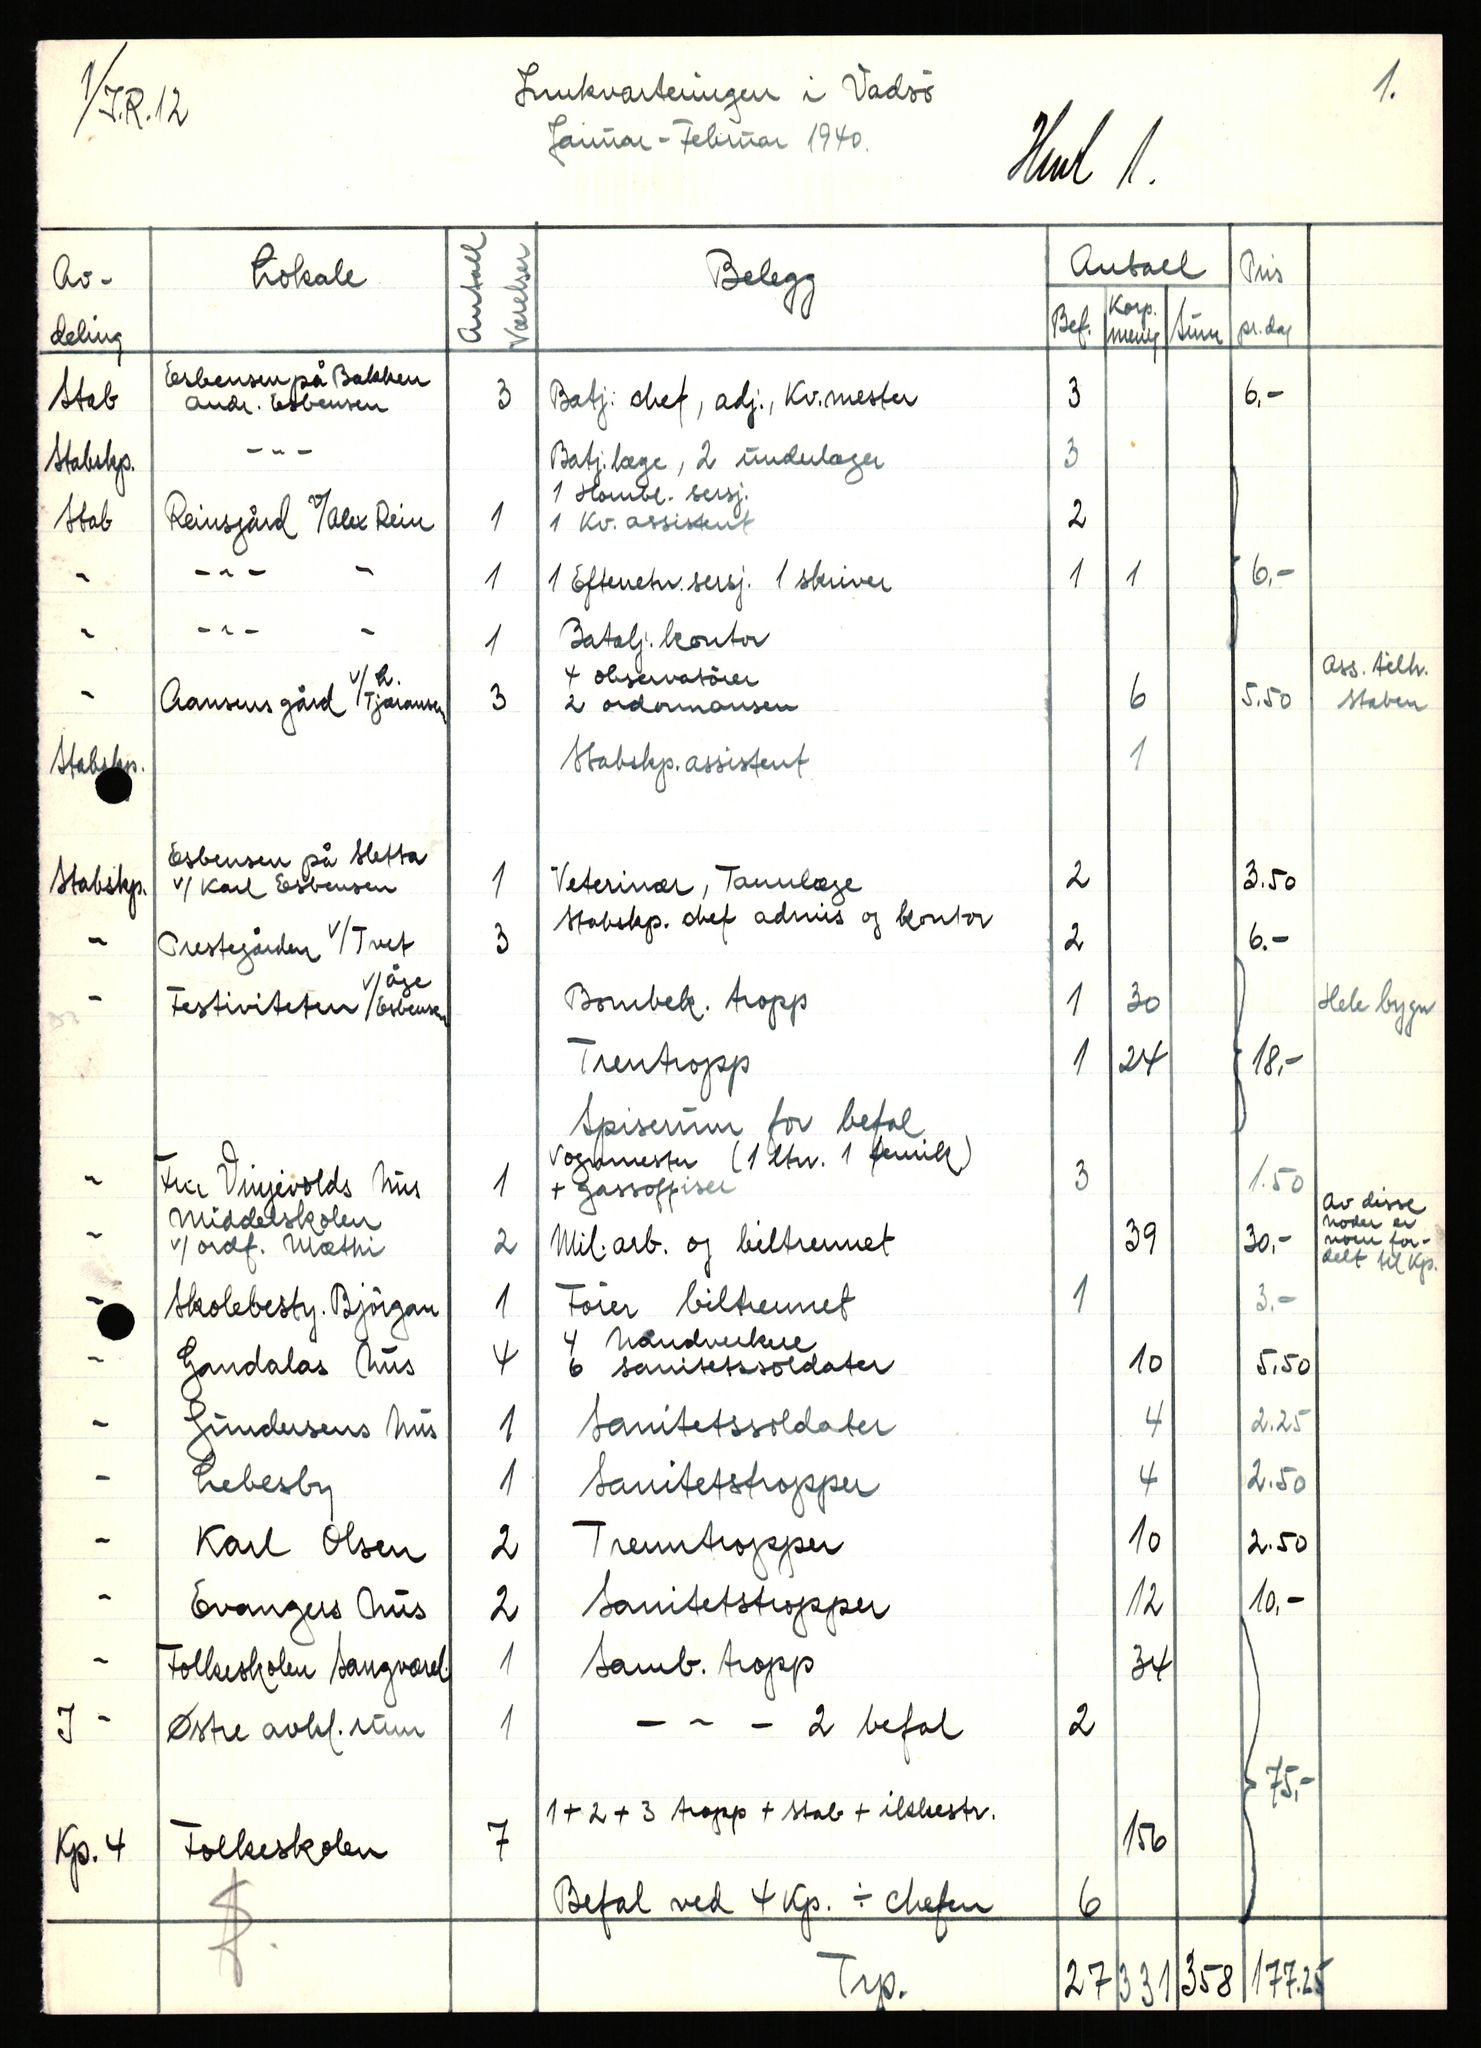 I/I.R. 12
Innkvarteringen i Vadsö
Januar - Februar 1940.
1.
1.
Av-deling | Lokale | Antall Værelser | Belegg | Antall | Pris pr. dag
Bef. | Korp. menig | Sum
Stab | Esbensen på Bakken Andr. Esbensen | 3 | Batj. chef, adj., Kv.mester | 3 | 6,-
Stabskp. | - " - | Batj.læge, 2 underlæger | 3
Stab | Reinsgård v/Alex Rein | 1 | 1 Kombl. sersj. 1 Kv. assistent | 2
" | - " - " | 1 | 1 Efterretn. sersj. 1 skriver | 1 | 1 | 6,-
" | - " - " | 1 | Batalj. kontor
" | Aansens gård v/ H. Tjæransen | 3 | 4 observatörer 2 ordonnansen | 6 | 5.50 | Ass. tilh. Staben
Stabskp. | Stabskp. assistent | 1
Stabskp. | Esbensen på Sletta v/ Karl Esbensen | 1 | Veterinær, Tannlæge | 2 | 3.50
" | Prestegården v/Tvet | 3 | Stabskp. chef admis og kontor | 2 | 6.-
" | Festiviteten v/ Åge Esbensen | Bombek. tropp | 1 | 30 | Hele bygn
Trentropp | 1 | 24 | 18,-
Spiserum for befal
" | Fru Vinjevolds hus | 1 | Vognmester (1 ltn. 1 fenrik) + gassoffiser | 3 | 1.50
" | Middelskolen v/ ordf. Mæthi | 2 | Mil. arb. og biltrennet | 39 | 30,- | Av disse noder er noen for-delt til Kp.
" | Skolebesty. Björgan | 1 | Förer biltrennet | 1 | 3.-
" | Gandalas hus | 4 | 4 håndverkere 6 sanitetssoldater | 10 | 5.50
" | Gundersens hus | 1 | Sanitetssoldater | 4 | 2.25
" | Lebesby | 1 | Sanitetstropper | 4 | 2.50
" | Karl Olsen | 2 | Trenntropper | 10 | 2.50
" | Evangers hus | 2 | Sanitetstropper | 12 | 10,-
" | Folkeskolen Sangværel. | 1 | Samb. tropp | 34
I " | Østre avkl. rum | 1 | - " - 2 befal | 2
75,-
Kp. 4 | Folkeskolen | 7 | 1 + 2 + 3 tropp + stab + ildbestr. | 156
Befal ved 4 Kp. ÷ chefen | 6
Trp. | 27 | 331 | 358 | 177.25